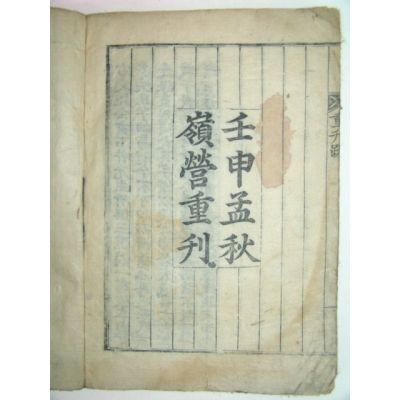 壬申孟秋
嶺營重刋